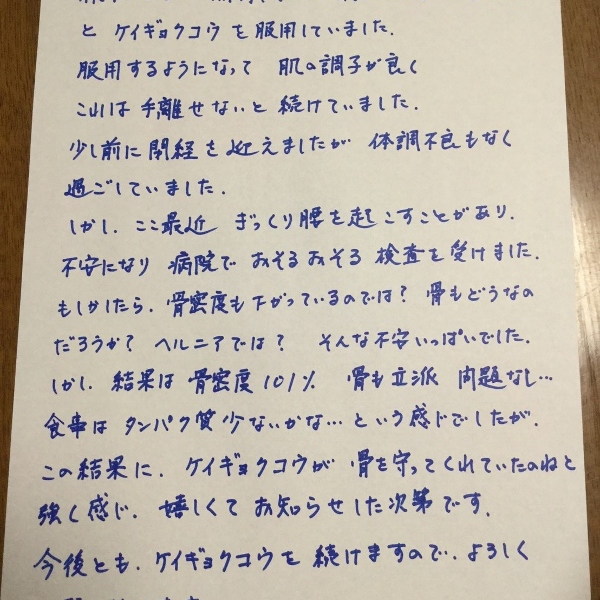 と ケイギョクコウ を 服用していました.
服用するようになって 肌の調子が良く
これは 手離せないと 続けていました.
少し前に 閉経を 迎えましたが 体調不良もなく
過ごしていました.
しかし. ここ最近 ぎっくり腰を起こすことがあり.
不安になり 病院で おそるおそる 検査を受けました.
もしかしたら. 骨密度も下がっているのでは? 骨もどうなの
だろうか? ヘルニアでは? そんな不安いっぱいでした.
しかし. 結果は 骨密度101% 骨も立派 問題なし…
食事は タンパク質少ないかな… という感じでしたが.
この結果に. ケイギョクコウが 骨を守ってくれていたのねと
強く感じ. 嬉しくて お知らせした次第です.
今後とも. ケイギョクコウを 続けますので. よろしく